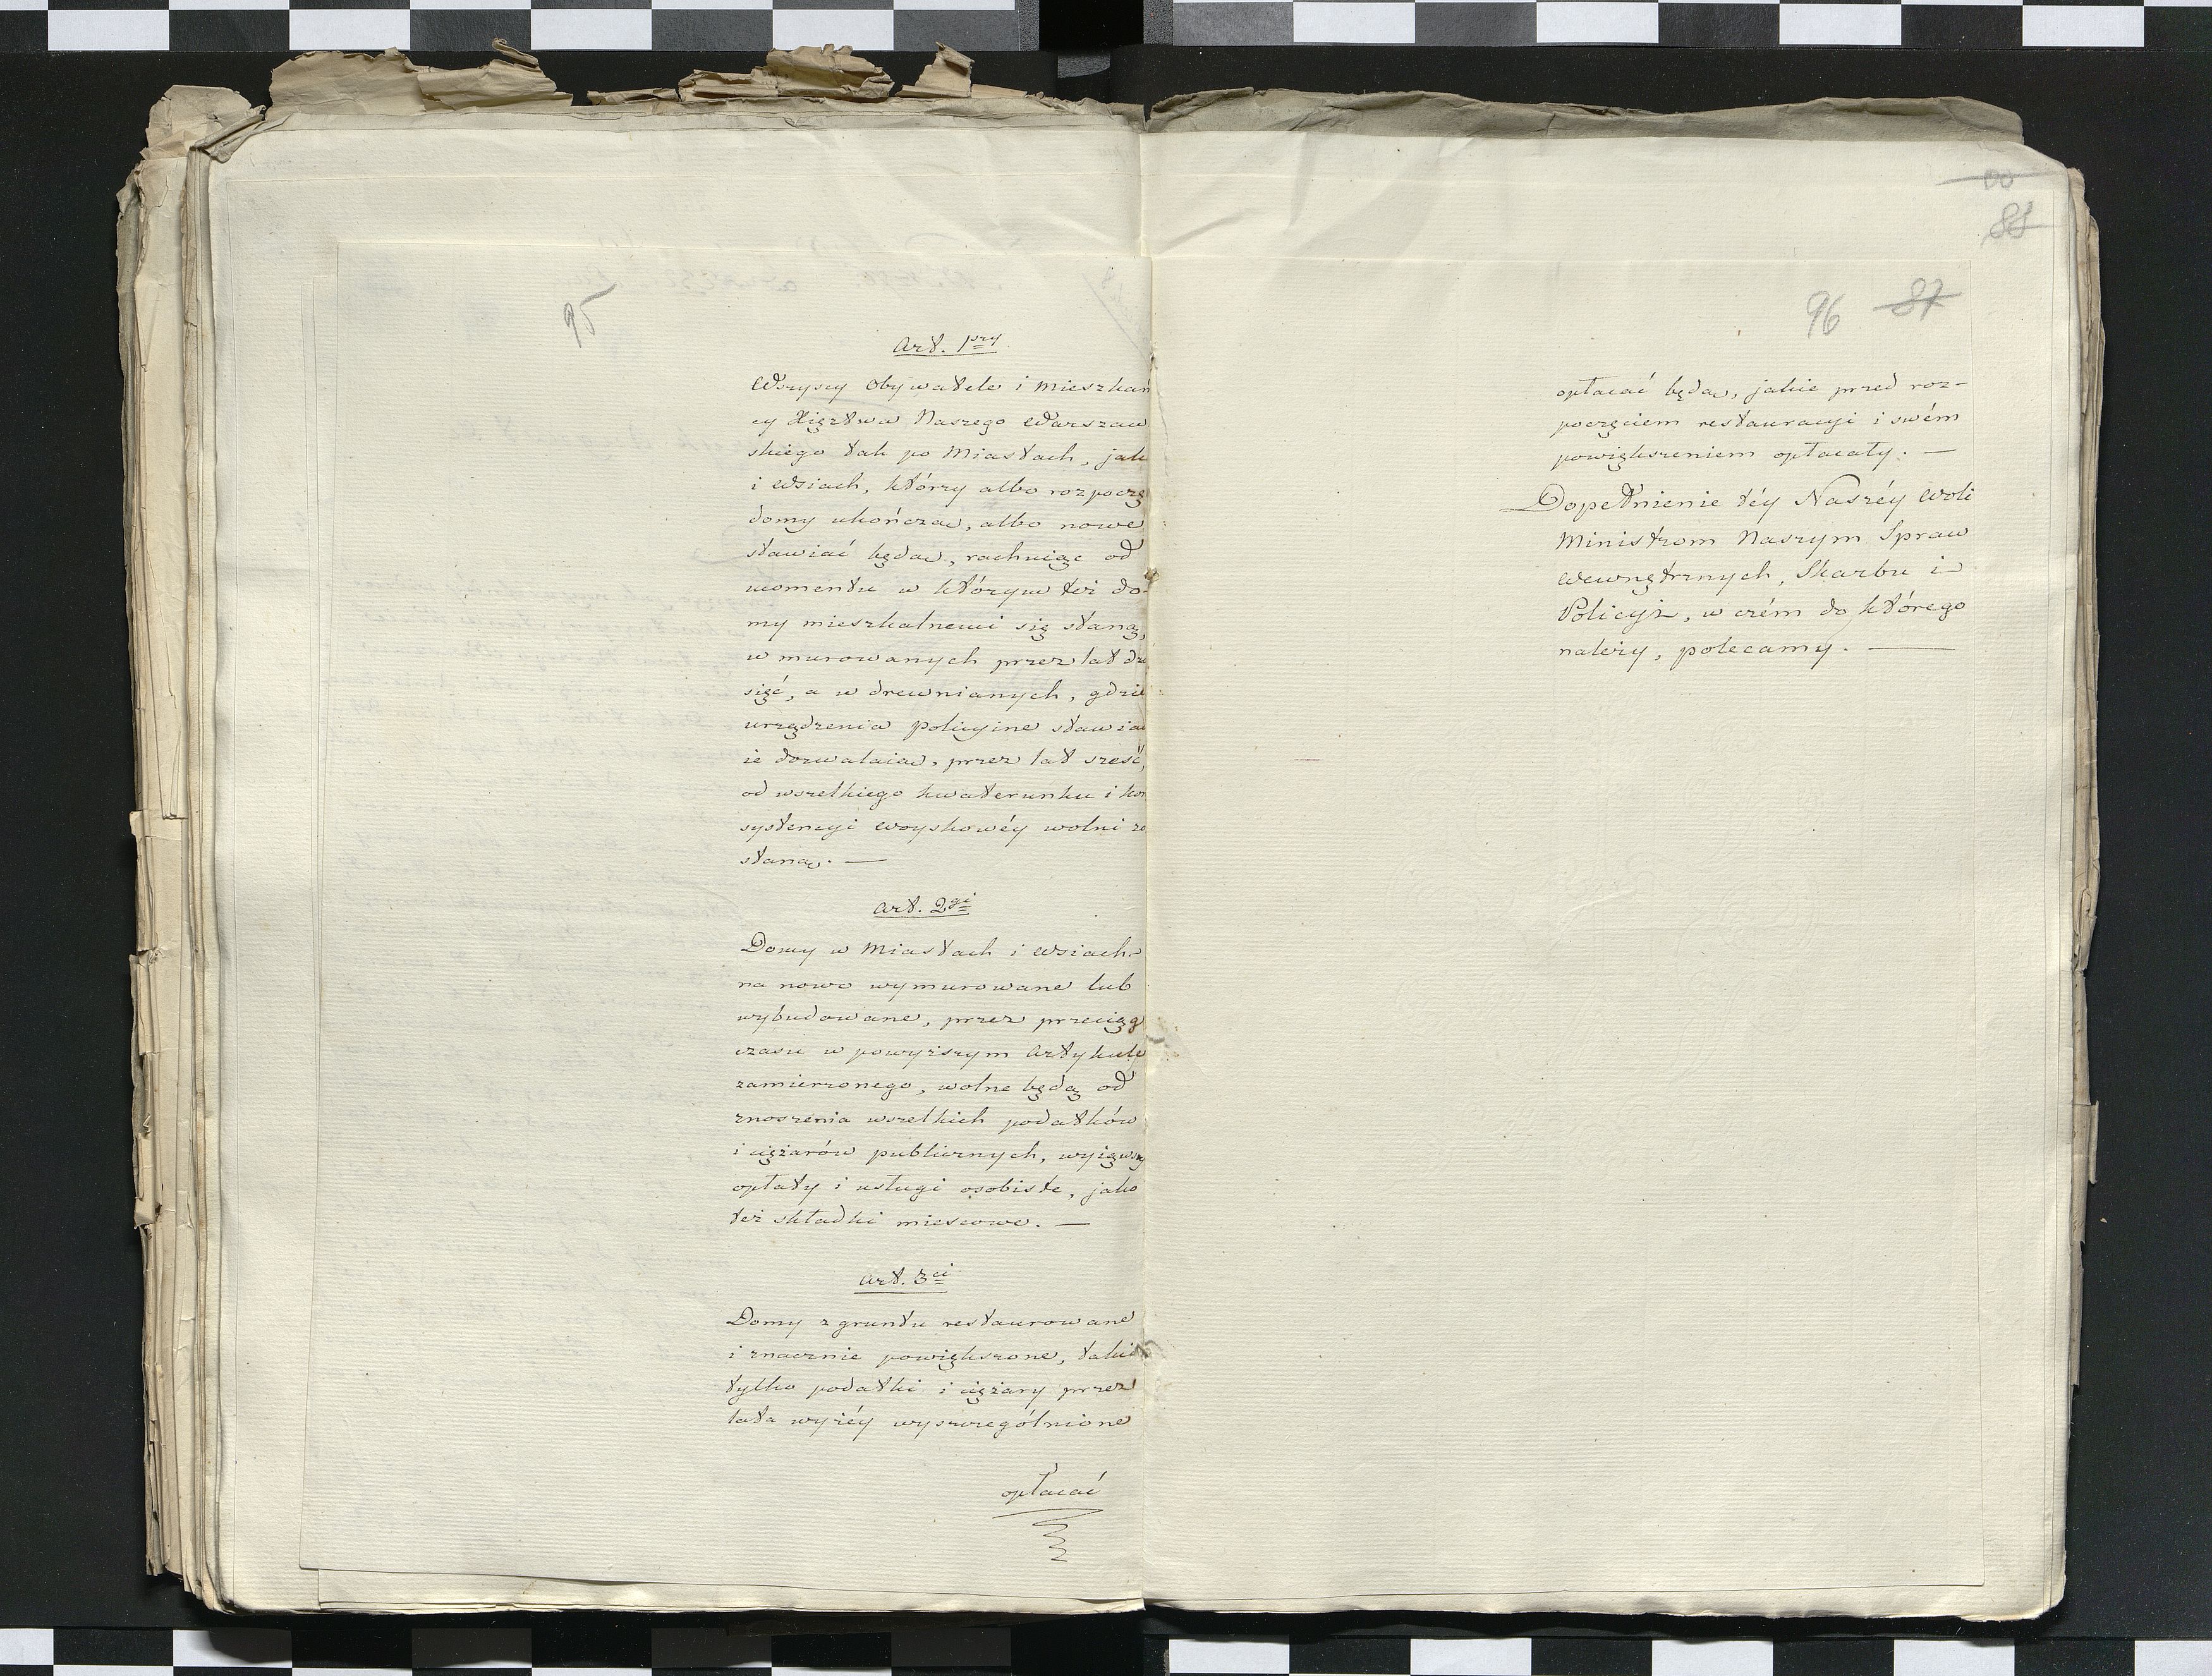 95
Art. 1szy
Wszyscy Obywatele i Mieszkań
cy Xięztwa Naszego Warszaw
skiego tak po Miastach, jak
i Wsiach, którzy albo rozpoczę
domy ukończą, albo nowe
stawiać będą, rachuiąc od
momentu w którym też do-
my mieszkalnemi się staną,
w murowanych przez lat dzie
sięć, a w drewnianych, gdzie
urządzenia policyine stawiać
ie dozwalaią, przez lat sześć,
od wszelkiego kwaterunku i kon
systencyi Woyskowéy wolni zo
staną. —
Art. 2gi
Domy w Miastach i Wsiach
na nowo wymurowane lub
wybudowane, przez przeciąg
czasu w powyższym Artykule
zamierzonego, wolne będą od
znoszenia wszelkich podatków
i ciężarów publicznych, wyiąwszy
opłaty i usługi osobiste, jako
też składki miescowe. —
Art. 3ci
Domy z gruntu restaurowane
i znacznie powiększone, takie
tylko podatki i ciężary przez
lata wyżéy wyszczególnione
opłacać
00
88
96 87
opłacać będą, jakie przed roz-
poczęciem restauracyi i swém
powiększeniem opłacały. —
Dopełnienie téy Naszéy Woli
Ministrom Naszym Spraw
Wewnętrznych, Skarbu i
Policyi, w czém do którego
należy, polecamy. —